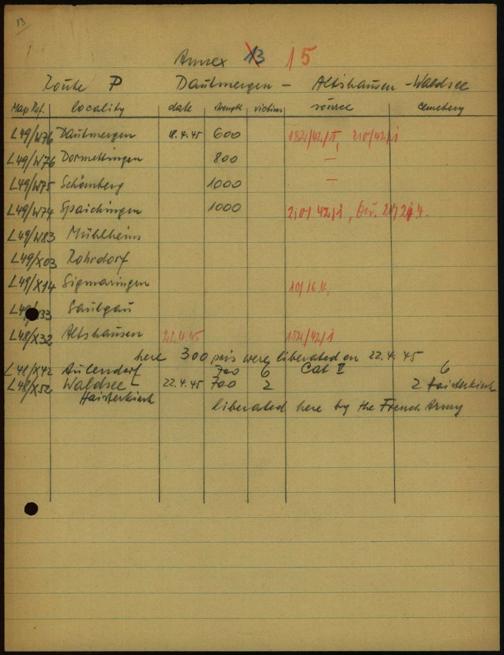 13
Annex 13 15
Route P Dautmergen - Altshausen - Waldsee
Map Ref. locality date strength victims source cemetery
L49/W76 Dautmergen 18.4.45 600
L49/W76 Dormettingen 800 —
L49/W75 Schömberg 1000 —
L49/W74 Spaichingen 1000
L49/W83 Mühlheim
L49/X03 Rohrdorf
L49/X14 Sigmaringen
Saulgau
L48/X32 Altshausen 22.4.45
here 300 pris were liberated on 22.4.45
L48/X42 Aulendorf 700 6 Cat I 6
L48/X52 Waldsee - 22.4.45 700 2 2 Haisterkirch
Haisterkirch liberated here by the French Army